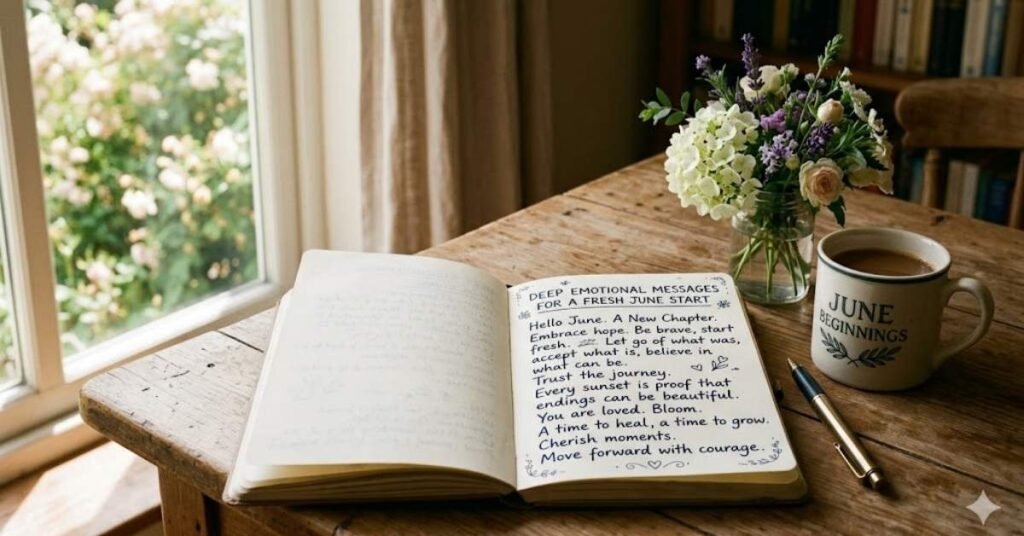 DEEP EMOTIONAL MESSAGES
FOR A FRESH JUNE START
Hello June. A New Chapter.
Embrace hope. Be brave, start
fresh. Let go of what was,
accept what is, believe in
what can be.
Trust the journey.
Every sunset is proof that
endings can be beautiful.
You are loved. Bloom.
A time to heal, a time to grow.
Cherish moments.
Move forward with courage.
JUNE
BEGINNINGS